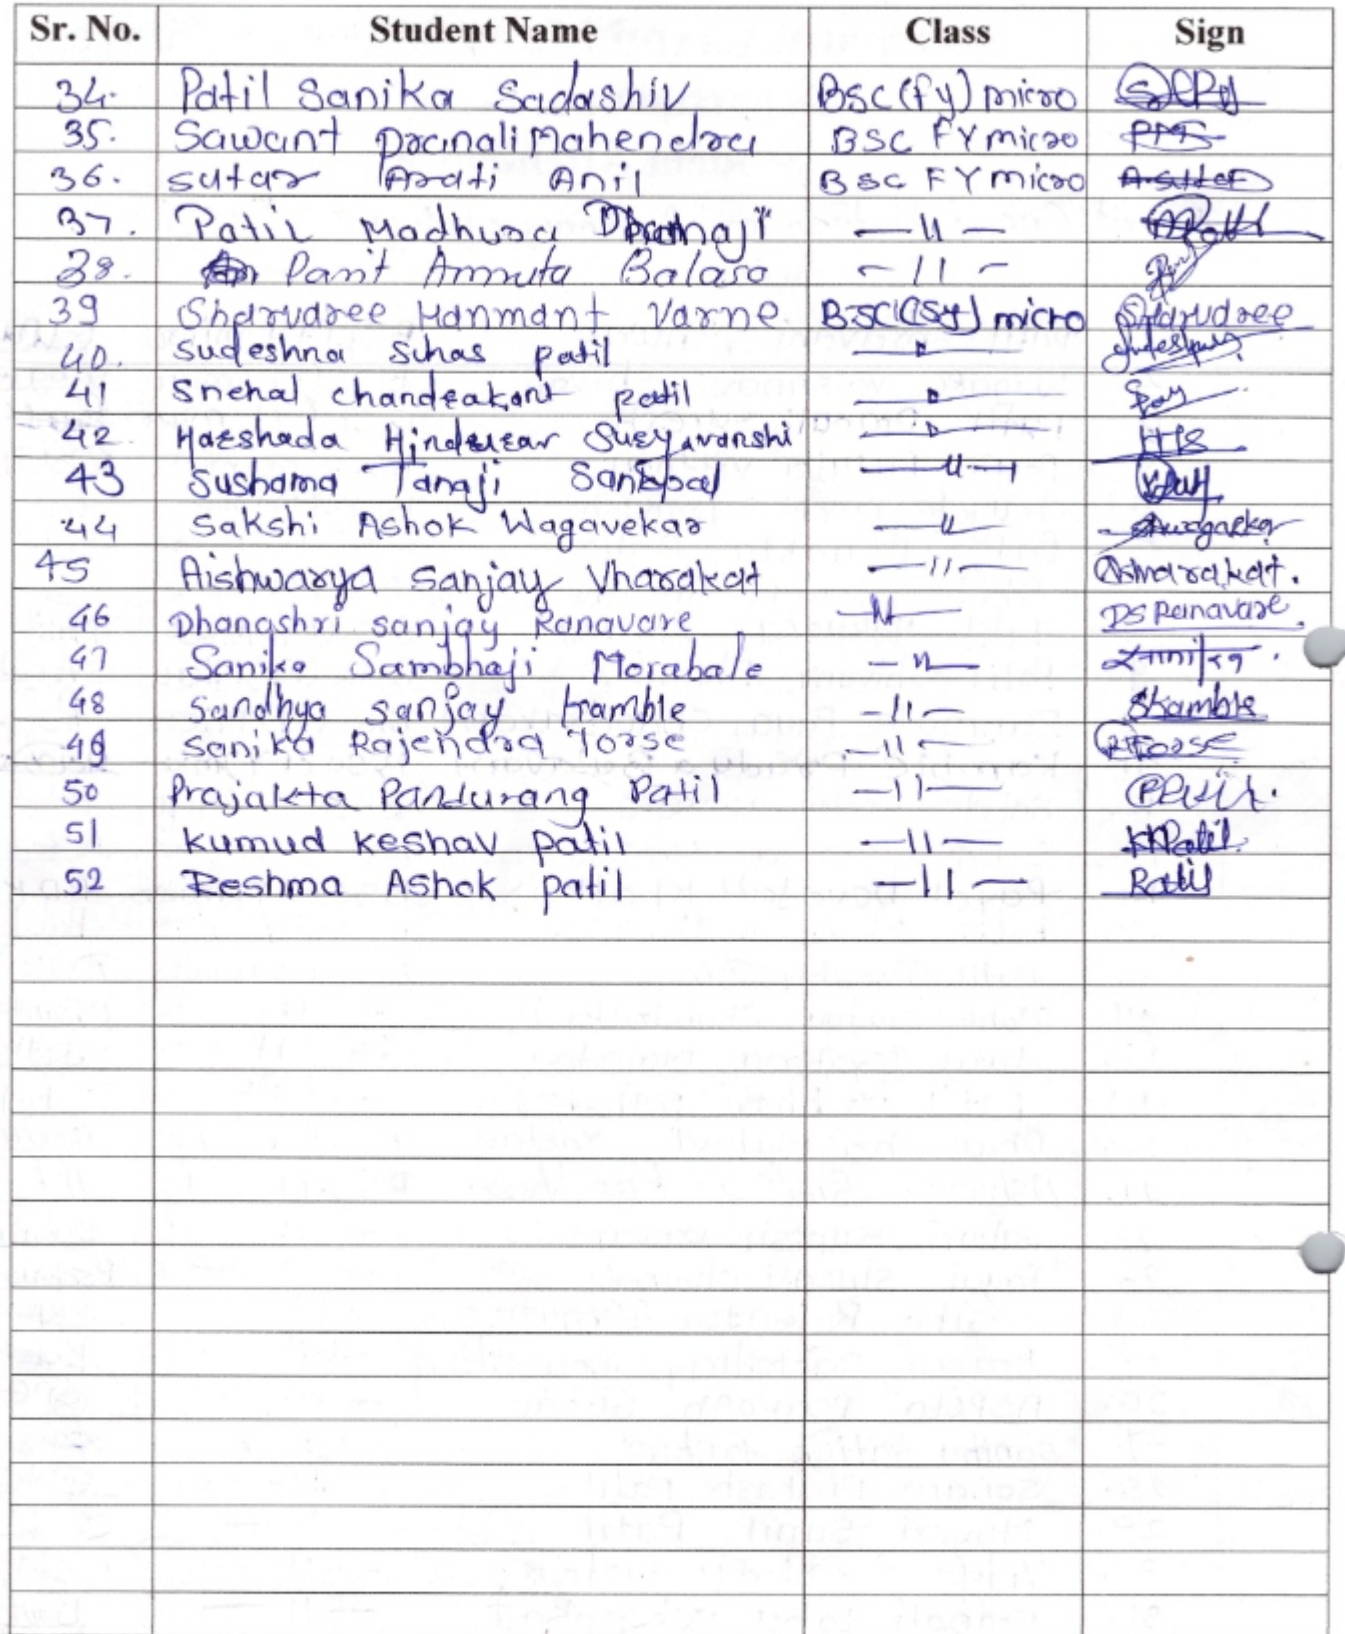 Sr. No. Student Name Class Sign
34. Patil Sanika Sadashiv BSC(fy) micro
35. Sawant pranali Mahendra BSC FY micro PMS
36. sutar Arati Anil BSC FY micro A.sutar
37. Patil Madhura Dhanaji —11—
38. Amruta Balaso —11—
39 Sharvdree Hanmant Varne BSC(Sy) micro Sharvdree
40. Sudeshna Suhas patil —"—
41 Snehal chandrakant patil —"—
42 Harshada Hindurao Suryavanshi —"— HHS
43 Sushama Tanaji Sankpal —11—
44 Sakshi Ashok Wagavekar —11—
45 Aishwarya Sanjay Vharakat —11—
46 Dhanashri sanjay Ranavare —11— DS Ranavare
47 Sanika Sambhaji Morabale —11—
48 Sandhya sanjay kamble —11— Skamble
49 Sanika Rajendra Torse —11—
50 Prajakta Pandurang Patil —11—
51 kumud keshav patil —11— KKPatil
52 Reshma Ashok patil —11— Patil